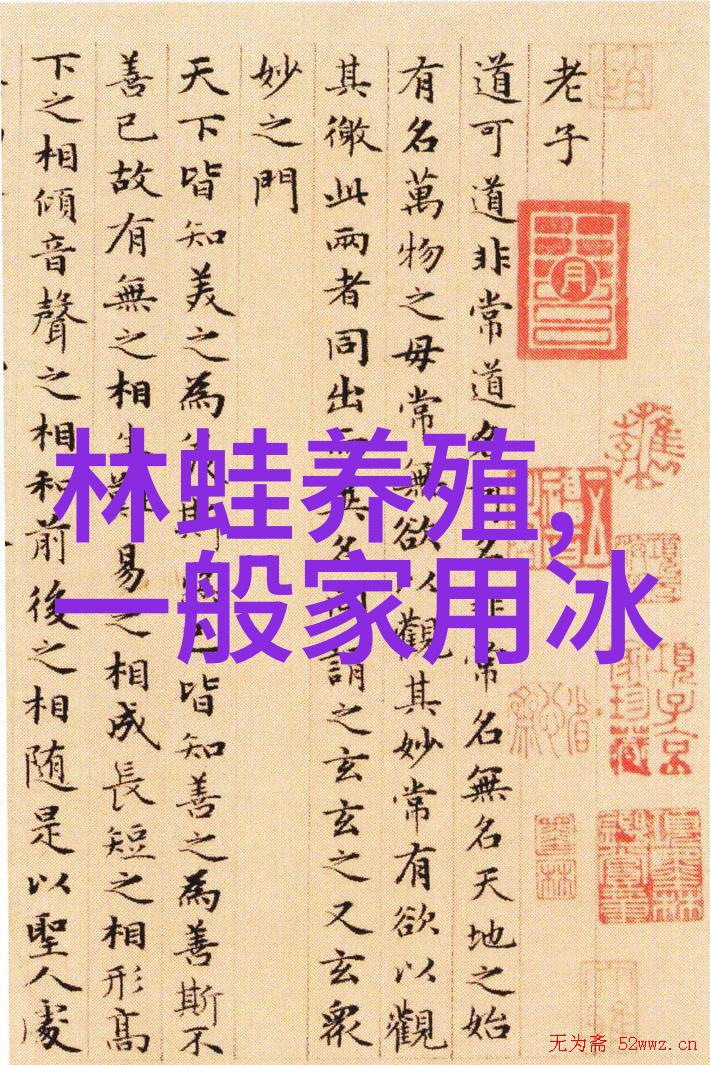 老子
道可道非常道名可名非常名無名天地之始
有名萬物之母常無欲以觀其妙常有欲以觀
其徼此兩者同出而異名同謂之玄玄之又玄眾
妙之門
天下皆知美之為美斯惡已皆知善之為善斯不
善已故有無之相生難易之相成長短之相形高
下之相傾音聲之相和前後之相随是以聖人處
林蛙养殖，
一般家用冰
項子京
家珍藏
无为斋 52wwz.cn